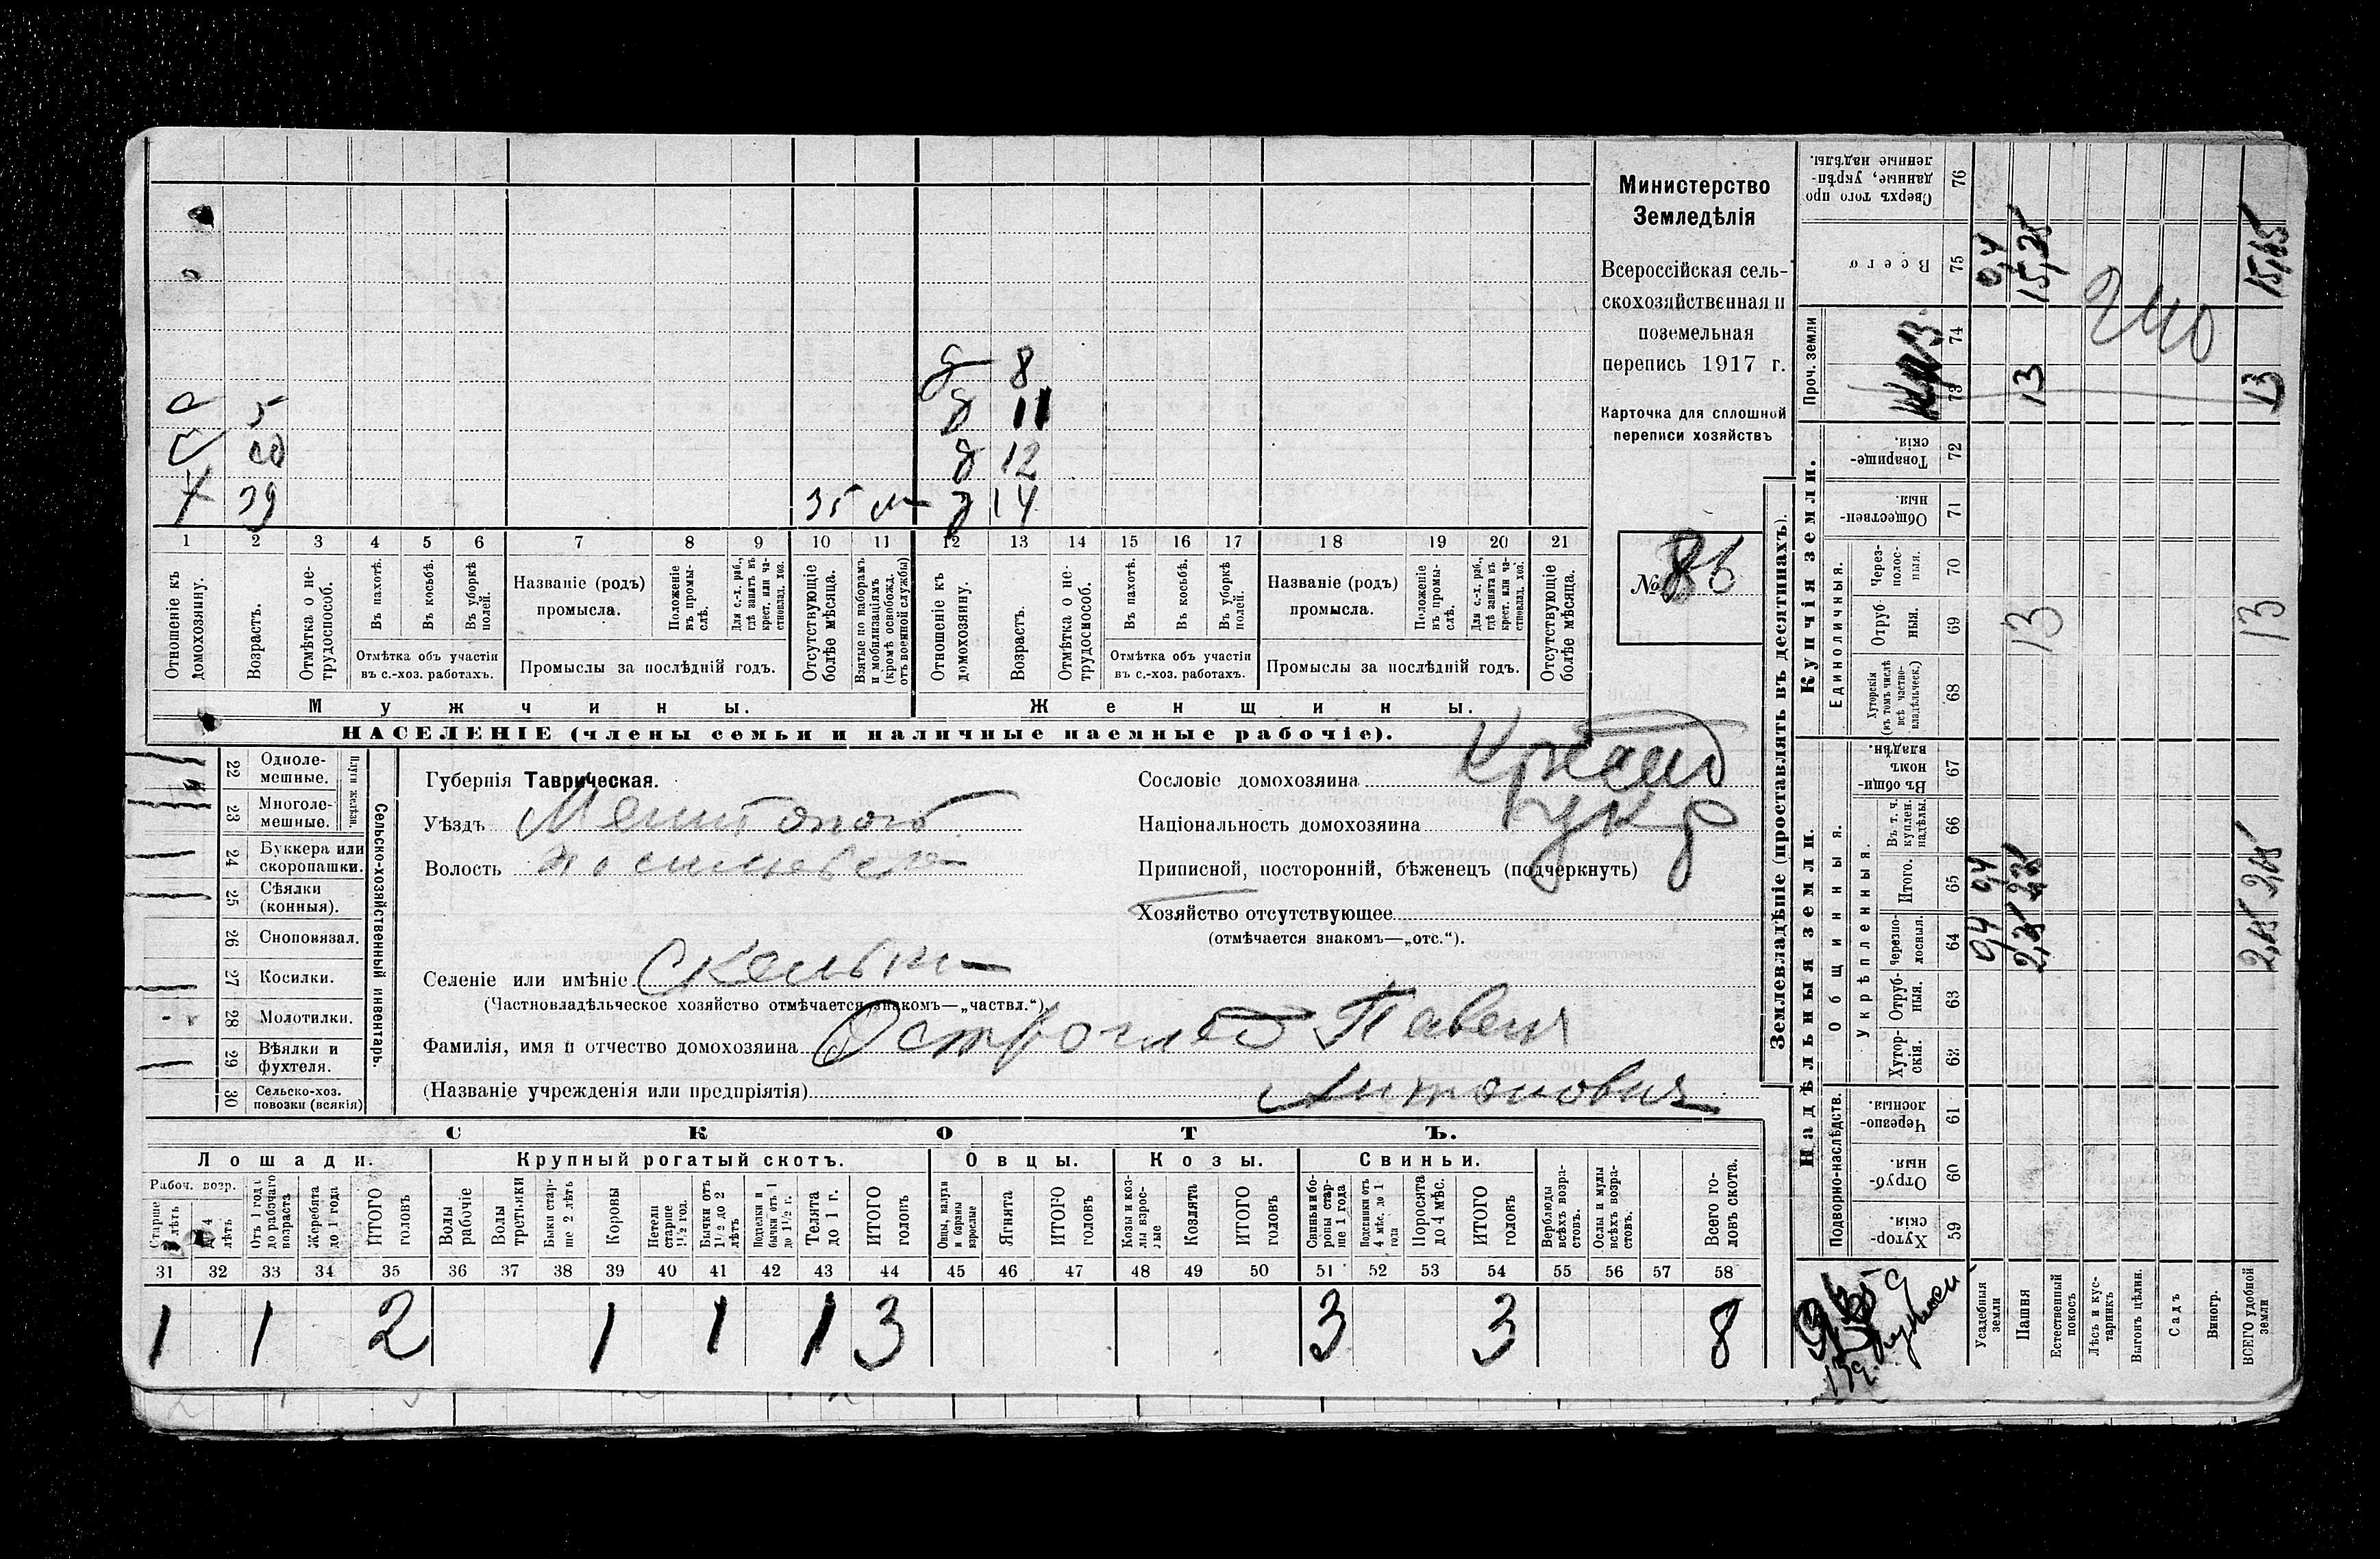 Министерство
Земледѣлія
Всероссійская сель-
скохозяйственная и
поземельная
перепись 1917 г.
Карточка для сплошной
переписи хозяйствъ
№ 86
д 8
с 5 д 11
с 10 д 12
х 39 35 м д 14
1 2 3 4 5 6 7 8 9 10 11 12 13 14 15 16 17 18 19 20 21
Отношеніе къ домохозяину.
Возрастъ.
Отмѣтка о не-трудоспособ.
Въ пахотѣ.
Въ косьбѣ.
Въ уборкѣ полей.
Отмѣтка объ участіи
въ с.-хоз. работахъ.
Названіе (родъ)
промысла.
Положеніе въ промы-слѣ.
Для с.-х. раб., гдѣ занятъ въ крест. или ча-стновлад. хоз.
Промыслы за послѣдній годъ.
Отсутствующіе болѣе мѣсяца.
Взятые по наборамъ и мобилизаціямъ (кромѣ освобожд. отъ военной службы)
Отношеніе къ домохозяину.
Возрастъ.
Отмѣтка о не-трудоспособ.
Въ пахотѣ.
Въ косьбѣ.
Въ уборкѣ полей.
Отмѣтка объ участіи
въ с.-хоз. работахъ.
Названіе (родъ)
промысла.
Положеніе въ промы-слѣ.
Для с.-х. раб., гдѣ занята въ крест. или ча-стновлад. хоз.
Промыслы за послѣдній годъ.
Отсутствующіе болѣе мѣсяца.
Мужчины. Женщины.
НАСЕЛЕНІЕ (члены семьи и наличные наемные рабочіе).
Сельско-хозяйственный инвентарь.
Плуги желѣзн.
22 Одноле-мешные.
23 Многоле-мешные.
24 Буккера или скоропашки.
25 Сѣялки (конныя).
26 Сноповязал.
27 Косилки.
28 Молотилки.
29 Вѣялки и фухтеля.
30 Сельско-хоз. повозки (всякія)
Губернія Таврическая.
Уѣздъ Мелитопол
Волость
Селеніе или имѣніе Скельки
(Частновладѣльческое хозяйство отмѣчается знакомъ—„частвл.“)
Фамилія, имя и отчество домохозяина Остроглед Павелъ
(Названіе учрежденія или предпріятія) Антонович
Сословіе домохозяина
Національность домохозяина укр
Приписной, посторонній, бѣженецъ (подчеркнуть)
Хозяйство отсутствующее
(отмѣчается знакомъ—„отс.“).
СКОТЪ.
Лошади. Крупный рогатый скотъ. Овцы. Козы. Свиньи.
Рабоч. возр.
Старше 4 лѣтъ
До 4 лѣтъ
Отъ 1 года до рабочаго возраста
Жеребята до 1 года
ИТОГО головъ
Волы рабочіе
Волы третьяки
Быки стар-ше 2 лѣтъ
Коровы
Нетели старше 1½ год.
Бычки отъ 1½ до 2 лѣтъ
Подтелки и бычки отъ 1 до 1½ г.
Телята до 1 г.
ИТОГО головъ
Овцы, валухи и бараны взрослые
Ягнята
ИТОГО головъ
Козы и коз-лы взрос-лые
Козлята
ИТОГО головъ
Свиньи и бо-ровы стар-ше 1 года
Подсвинки отъ 4 мѣс. до 1 года
Поросята до 4 мѣс.
ИТОГО головъ
Верблюды всѣхъ возра-стовъ.
Ослы и мулы всѣхъ возра-стовъ.
Всего го-ловъ скота.
31 32 33 34 35 36 37 38 39 40 41 42 43 44 45 46 47 48 49 50 51 52 53 54 55 56 57 58
1 1 2 1 1 1 3 3 3 8
Землевладѣніе (проставлять въ десятинахъ).
Надѣльныя земли. Купчія земли. Проч. земли
Подворно-наслѣдств. Общинныя. Укрѣпленныя. Единоличныя.
59 Хутор-скія.
60 Отруб-ныя.
61 Черезпо-лосныя.
62 Хутор-скія.
63 Отруб-ныя.
64 Черезпо-лосныя.
65 Итого.
66 Въ т. ч. куплен. надѣлы.
67 Въ общи-номъ владѣн.
68 Хуторскія (въ томъ числѣ всѣ частно-владѣльческ.)
69 Отруб-ныя.
70 Через-полос-ныя.
71 Обществен-ныя.
72 Товарище-скія.
73
74
75 Всего
76 Сверхъ того про-данные, укрѣп-ленные надѣлы.
Усадебныя земли 0,4 0,4 0,4
Пашня 2,25 2,25 13 13 15,25
Естественный покосъ
Лѣсъ и кус-тарникъ
Выгонъ цѣлин.
Садъ
Виногр.
ВСЕГО удобной земли 2,65 2,65 13 13 15,65
240